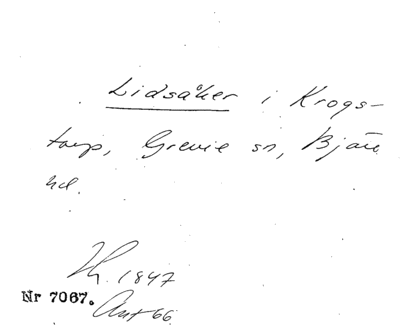 Lidsåker i Krogs-
torp, Grevie sn, Bjäre
hd.
1847
Nr 7067.
66